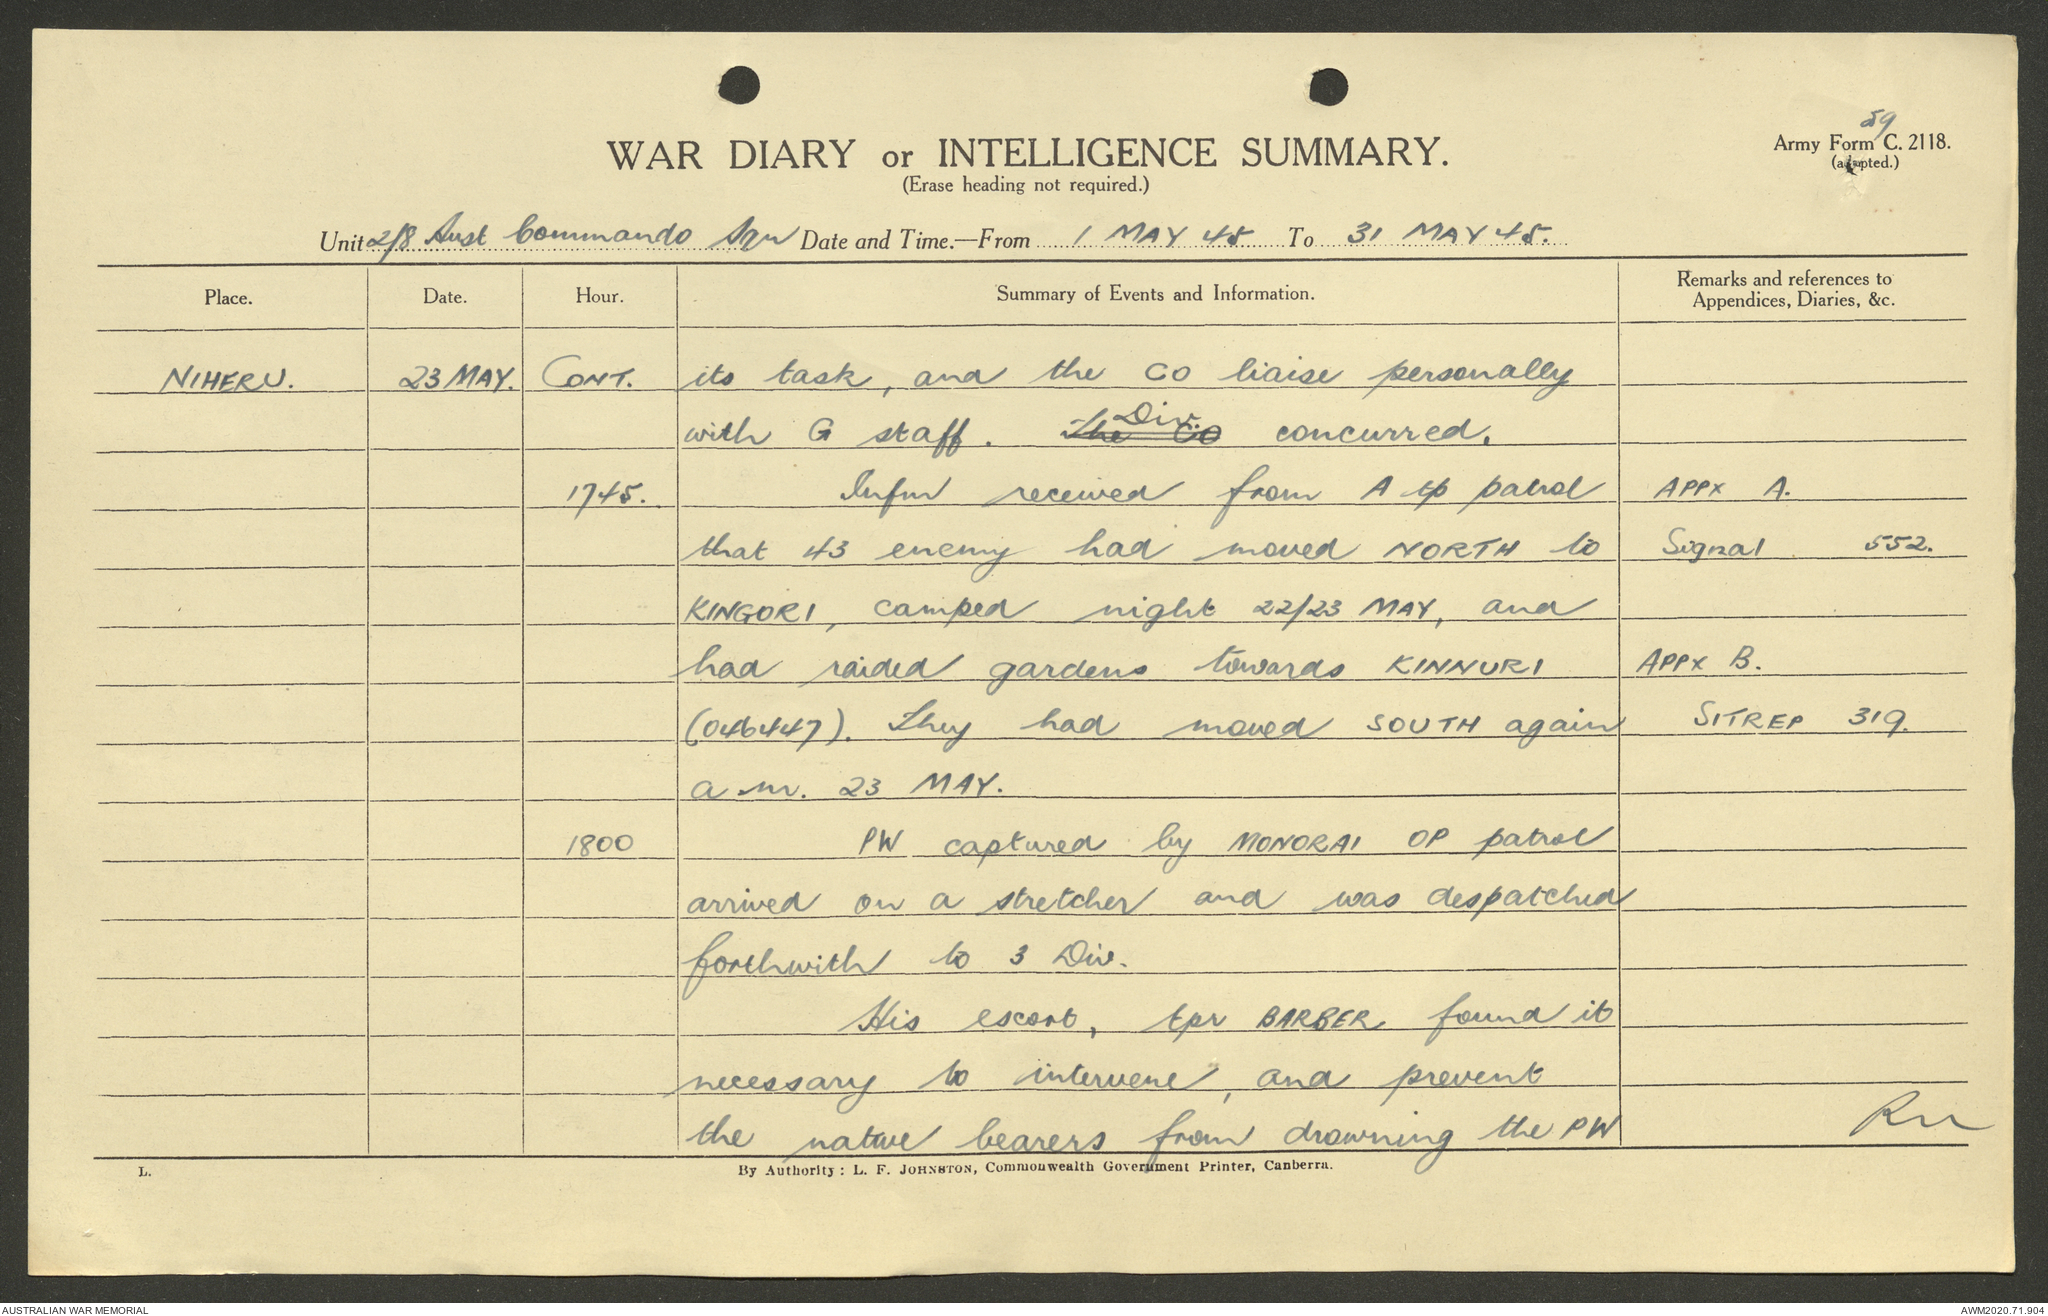 59
WAR DIARY or INTELLIGENCE SUMMARY.
Army Form C. 2118.
(adapted.)
(Erase heading not required.)
Unit 2/8 Aust Commando Sqn Date and Time.—From 1 MAY 45 To 31 MAY 45.
Place. Date. Hour. Summary of Events and Information. Remarks and references to Appendices, Diaries, &c.
NIHERU. 23 MAY. CONT. its task, and the CO liaise personally
with G staff. The CO Div. concurred.
1745. Infm received from A tp patrol APPX A.
that 43 enemy had moved NORTH to Signal 552.
KINGORI, camped night 22/23 MAY, and
had raided gardens towards KINNURI APPX B.
(046447). They had moved SOUTH again SITREP 319.
a.m. 23 MAY.
1800 PW captured by MONORAI OP patrol
arrived on a stretcher and was despatched
forthwith to 3 Div.
His escort, tpr BARBER found it
necessary to intervene, and prevent
the native bearers from drowning the PW
L. By Authority: L. F. JOHNSTON, Commonwealth Government Printer, Canberra.
AUSTRALIAN WAR MEMORIAL AWM2020.71.904